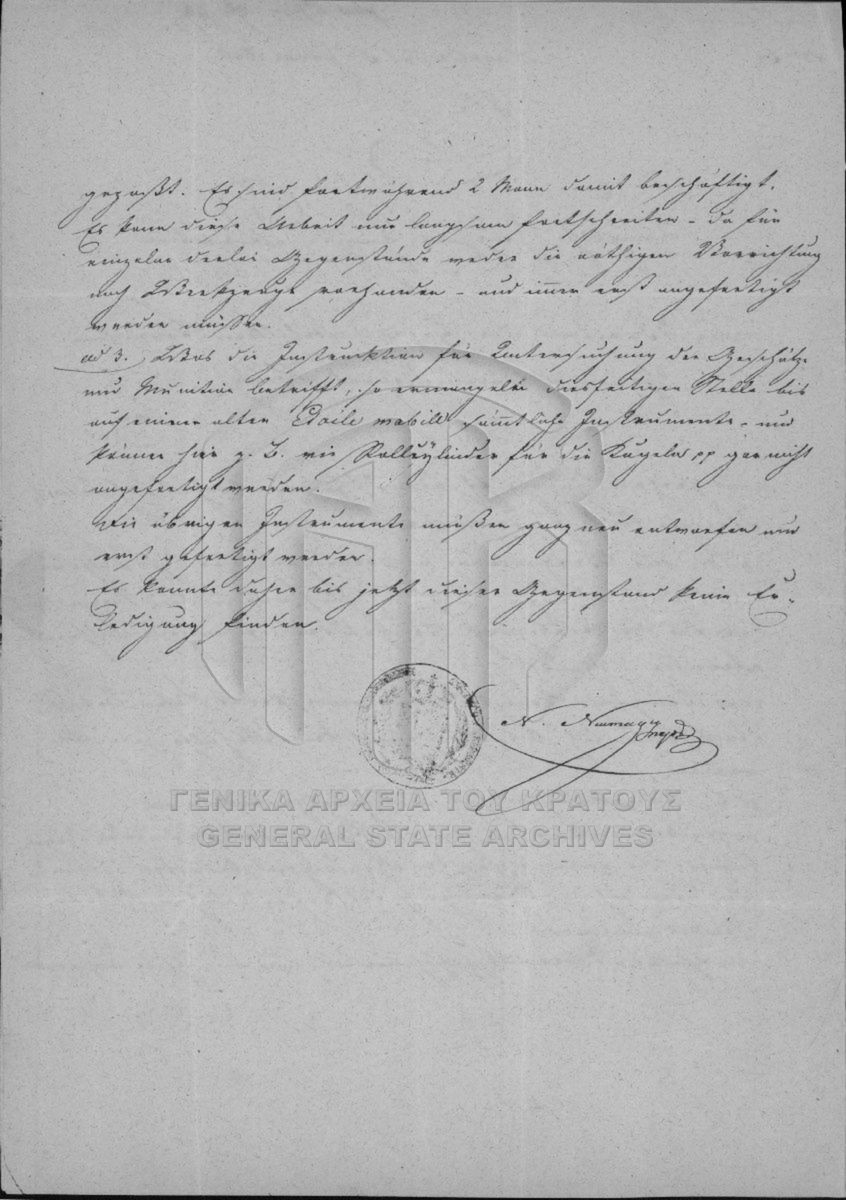 gepaßt. Es sind fortwährend 2 Mann damit beschäftigt.
Es kann diese Arbeit nur langsam fortschreiten – da für
einzelne derlei Gegenstände weder die nöthigen Vorrichtung
noch Werkzeuge vorhanden – und immer erst angefertigt
werden müssen.
ad 3. Was die Instrucktion für Untersuchung der Geschütze
und Munition betrifft, so ermangeln diesseitigen Stelle bis
auf einen alten Etoile mobile sämmtliche Instrumente – und
können hier z. B. die Rollcylinder für die Kugeln pp gar nicht
angefertigt werden.
Die übrigen Instrumente müßen ganz neu entworfen und
erst gefertigt werden.
Es konnte daher bis jetzt dieser Gegenstand keine Er-
ledigung finden.
N.
ΓΕΝΙΚΑ ΑΡΧΕΙΑ ΤΟΥ ΚΡΑΤΟΥΣ
GENERAL STATE ARCHIVES